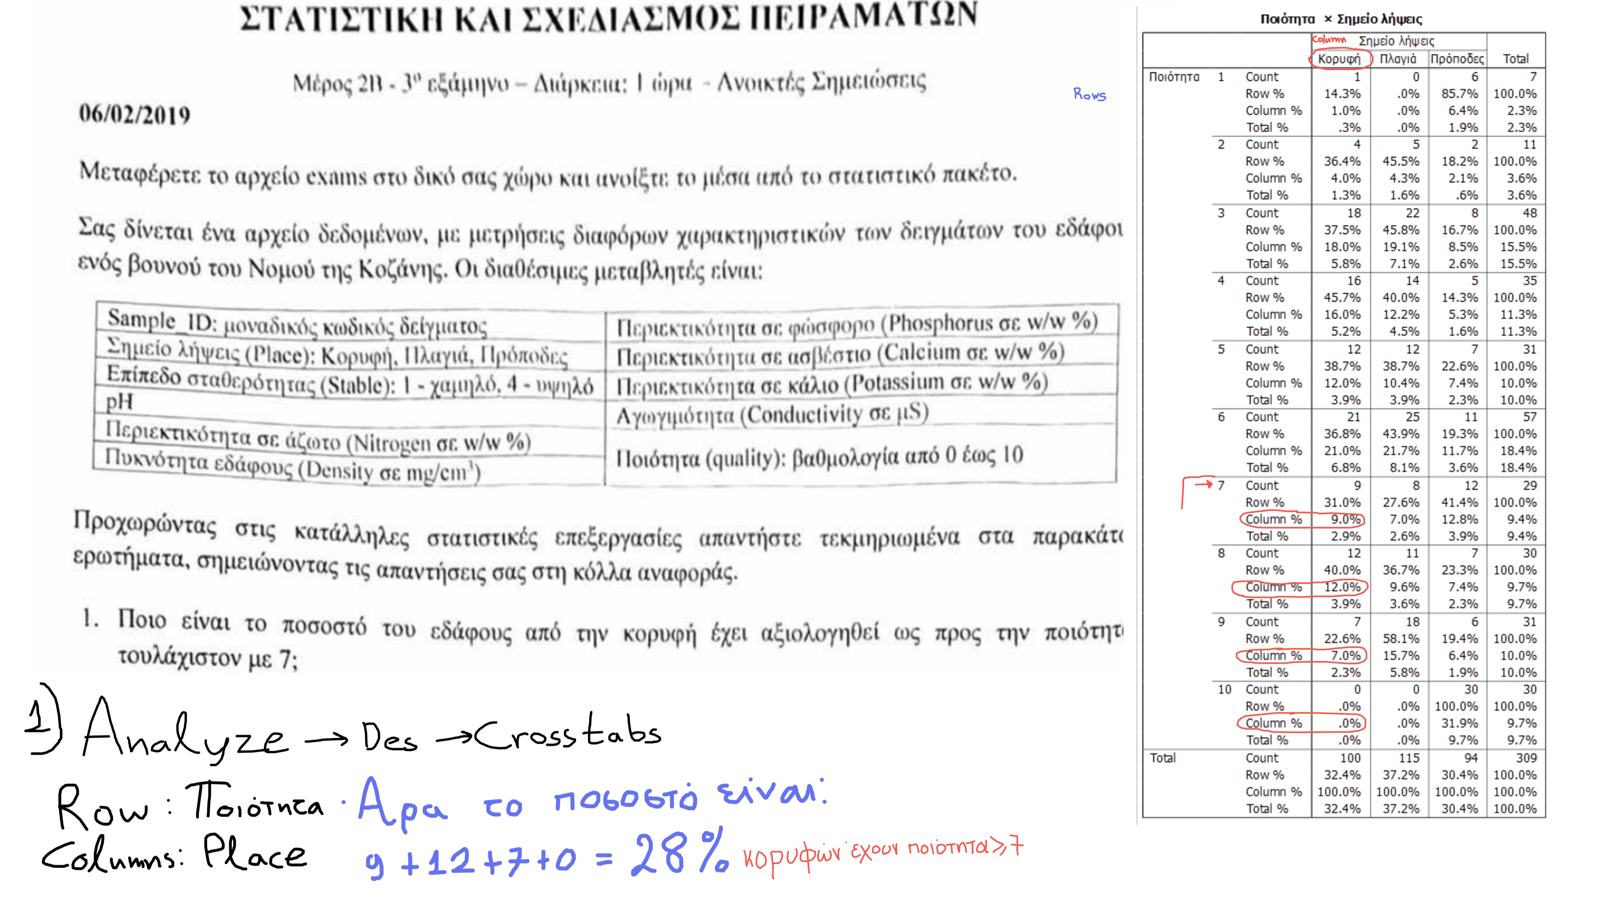 ΣΤΑΤΙΣΤΙΚΗ ΚΑΙ ΣΧΕΔΙΑΣΜΟΣ ΠΕΙΡΑΜΑΤΩΝ
Μέρος 2Β - 3ο εξάμηνο – Διάρκεια: 1 ώρα - Ανοικτές Σημειώσεις
06/02/2019
Μεταφέρετε το αρχείο exams στο δικό σας χώρο και ανοίξτε το μέσα από το στατιστικό πακέτο.
Σας δίνεται ένα αρχείο δεδομένων, με μετρήσεις διαφόρων χαρακτηριστικών των δειγμάτων του εδάφου
ενός βουνού του Νομού της Κοζάνης. Οι διαθέσιμες μεταβλητές είναι:
Sample_ID: μοναδικός κωδικός δείγματος
Σημείο λήψεις (Place): Κορυφή, Πλαγιά, Πρόποδες
Επίπεδο σταθερότητας (Stable): 1 - χαμηλό, 4 - υψηλό
pH
Περιεκτικότητα σε άζωτο (Nitrogen σε w/w %)
Πυκνότητα εδάφους (Density σε mg/cm³)
Περιεκτικότητα σε φώσφορο (Phosphorus σε w/w %)
Περιεκτικότητα σε ασβέστιο (Calcium σε w/w %)
Περιεκτικότητα σε κάλιο (Potassium σε w/w %)
Αγωγιμότητα (Conductivity σε μS)
Ποιότητα (quality): βαθμολογία από 0 έως 10
Προχωρώντας στις κατάλληλες στατιστικές επεξεργασίες απαντήστε τεκμηριωμένα στα παρακάτω
ερωτήματα, σημειώνοντας τις απαντήσεις σας στη κόλλα αναφοράς.
1. Ποιο είναι το ποσοστό του εδάφους από την κορυφή έχει αξιολογηθεί ως προς την ποιότητ
τουλάχιστον με 7;
1) Analyze → Des → Crosstabs
Row : Ποιότητα · Αρα το ποσοστό είναι:
Columns: Place 9 + 12 + 7 + 0 = 28% κορυφών έχουν ποιότητα ≥ 7
Rows
Ποιότητα × Σημείο λήψεις
Column Σημείο λήψεις
Κορυφή Πλαγιά Πρόποδες Total
Ποιότητα 1 Count 1 0 6 7
Row % 14.3% .0% 85.7% 100.0%
Column % 1.0% .0% 6.4% 2.3%
Total % .3% .0% 1.9% 2.3%
2 Count 4 5 2 11
Row % 36.4% 45.5% 18.2% 100.0%
Column % 4.0% 4.3% 2.1% 3.6%
Total % 1.3% 1.6% .6% 3.6%
3 Count 18 22 8 48
Row % 37.5% 45.8% 16.7% 100.0%
Column % 18.0% 19.1% 8.5% 15.5%
Total % 5.8% 7.1% 2.6% 15.5%
4 Count 16 14 5 35
Row % 45.7% 40.0% 14.3% 100.0%
Column % 16.0% 12.2% 5.3% 11.3%
Total % 5.2% 4.5% 1.6% 11.3%
5 Count 12 12 7 31
Row % 38.7% 38.7% 22.6% 100.0%
Column % 12.0% 10.4% 7.4% 10.0%
Total % 3.9% 3.9% 2.3% 10.0%
6 Count 21 25 11 57
Row % 36.8% 43.9% 19.3% 100.0%
Column % 21.0% 21.7% 11.7% 18.4%
Total % 6.8% 8.1% 3.6% 18.4%
7 Count 9 8 12 29
Row % 31.0% 27.6% 41.4% 100.0%
Column % 9.0% 7.0% 12.8% 9.4%
Total % 2.9% 2.6% 3.9% 9.4%
8 Count 12 11 7 30
Row % 40.0% 36.7% 23.3% 100.0%
Column % 12.0% 9.6% 7.4% 9.7%
Total % 3.9% 3.6% 2.3% 9.7%
9 Count 7 18 6 31
Row % 22.6% 58.1% 19.4% 100.0%
Column % 7.0% 15.7% 6.4% 10.0%
Total % 2.3% 5.8% 1.9% 10.0%
10 Count 0 0 30 30
Row % .0% .0% 100.0% 100.0%
Column % .0% .0% 31.9% 9.7%
Total % .0% .0% 9.7% 9.7%
Total Count 100 115 94 309
Row % 32.4% 37.2% 30.4% 100.0%
Column % 100.0% 100.0% 100.0% 100.0%
Total % 32.4% 37.2% 30.4% 100.0%